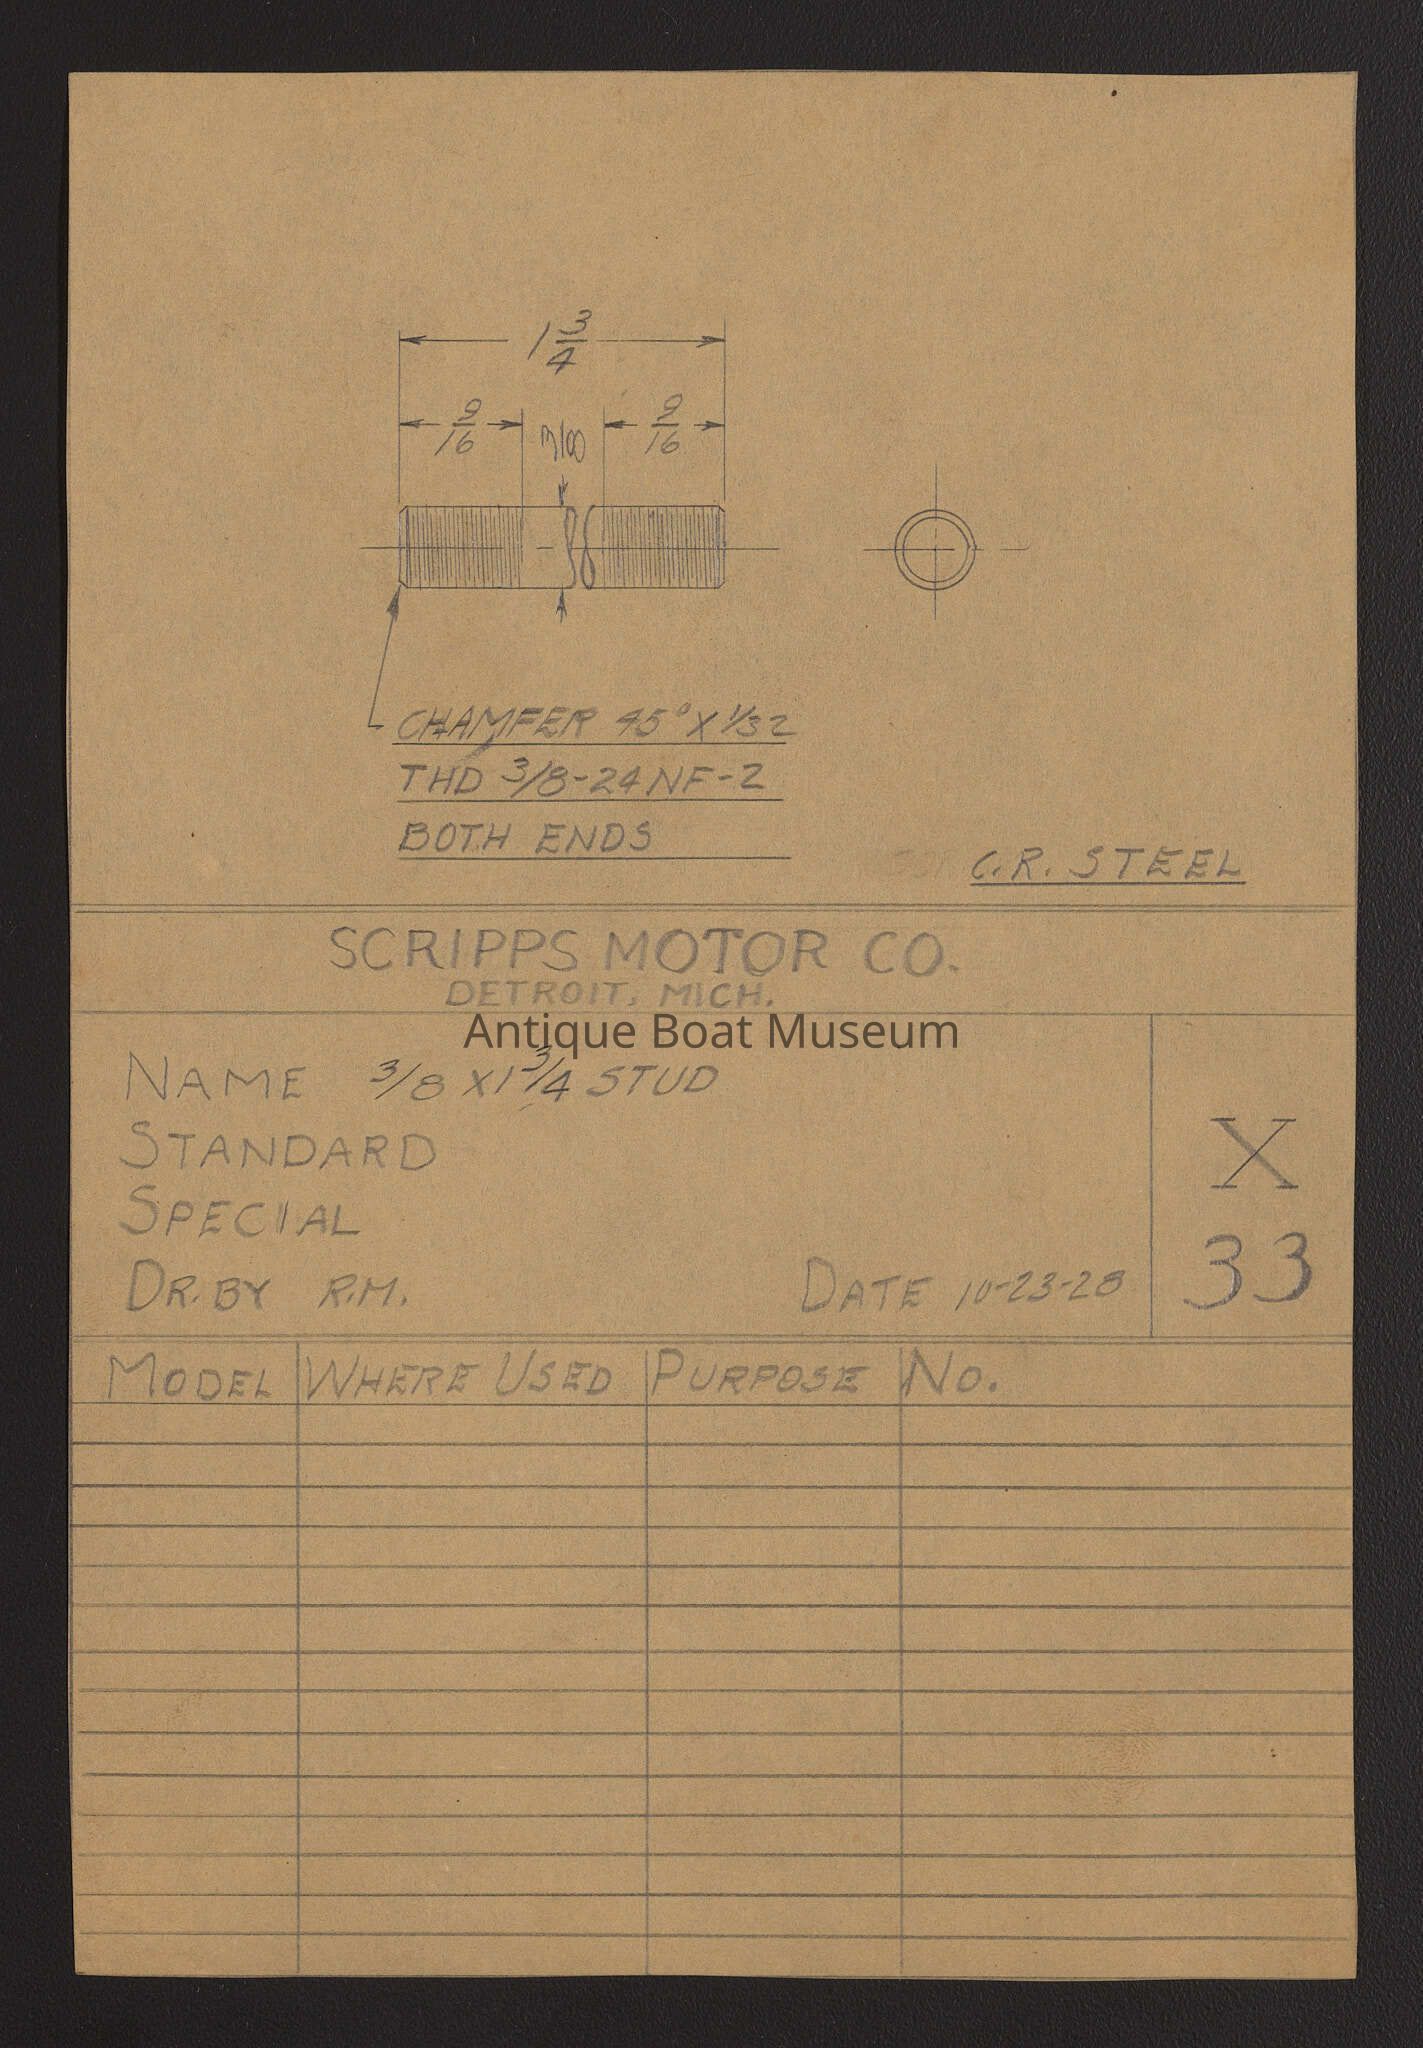 1 3/4
9/16 3/8 9/16
CHAMFER 45° X 1/32
THD 3/8-24 NF-2
BOTH ENDS
C.R. STEEL
SCRIPPS MOTOR CO.
DETROIT, MICH.
Antique Boat Museum
NAME 3/8 X 1 3/4 STUD
STANDARD
SPECIAL
DR. BY R.M. DATE 10-23-28
X
33
MODEL WHERE USED PURPOSE NO.